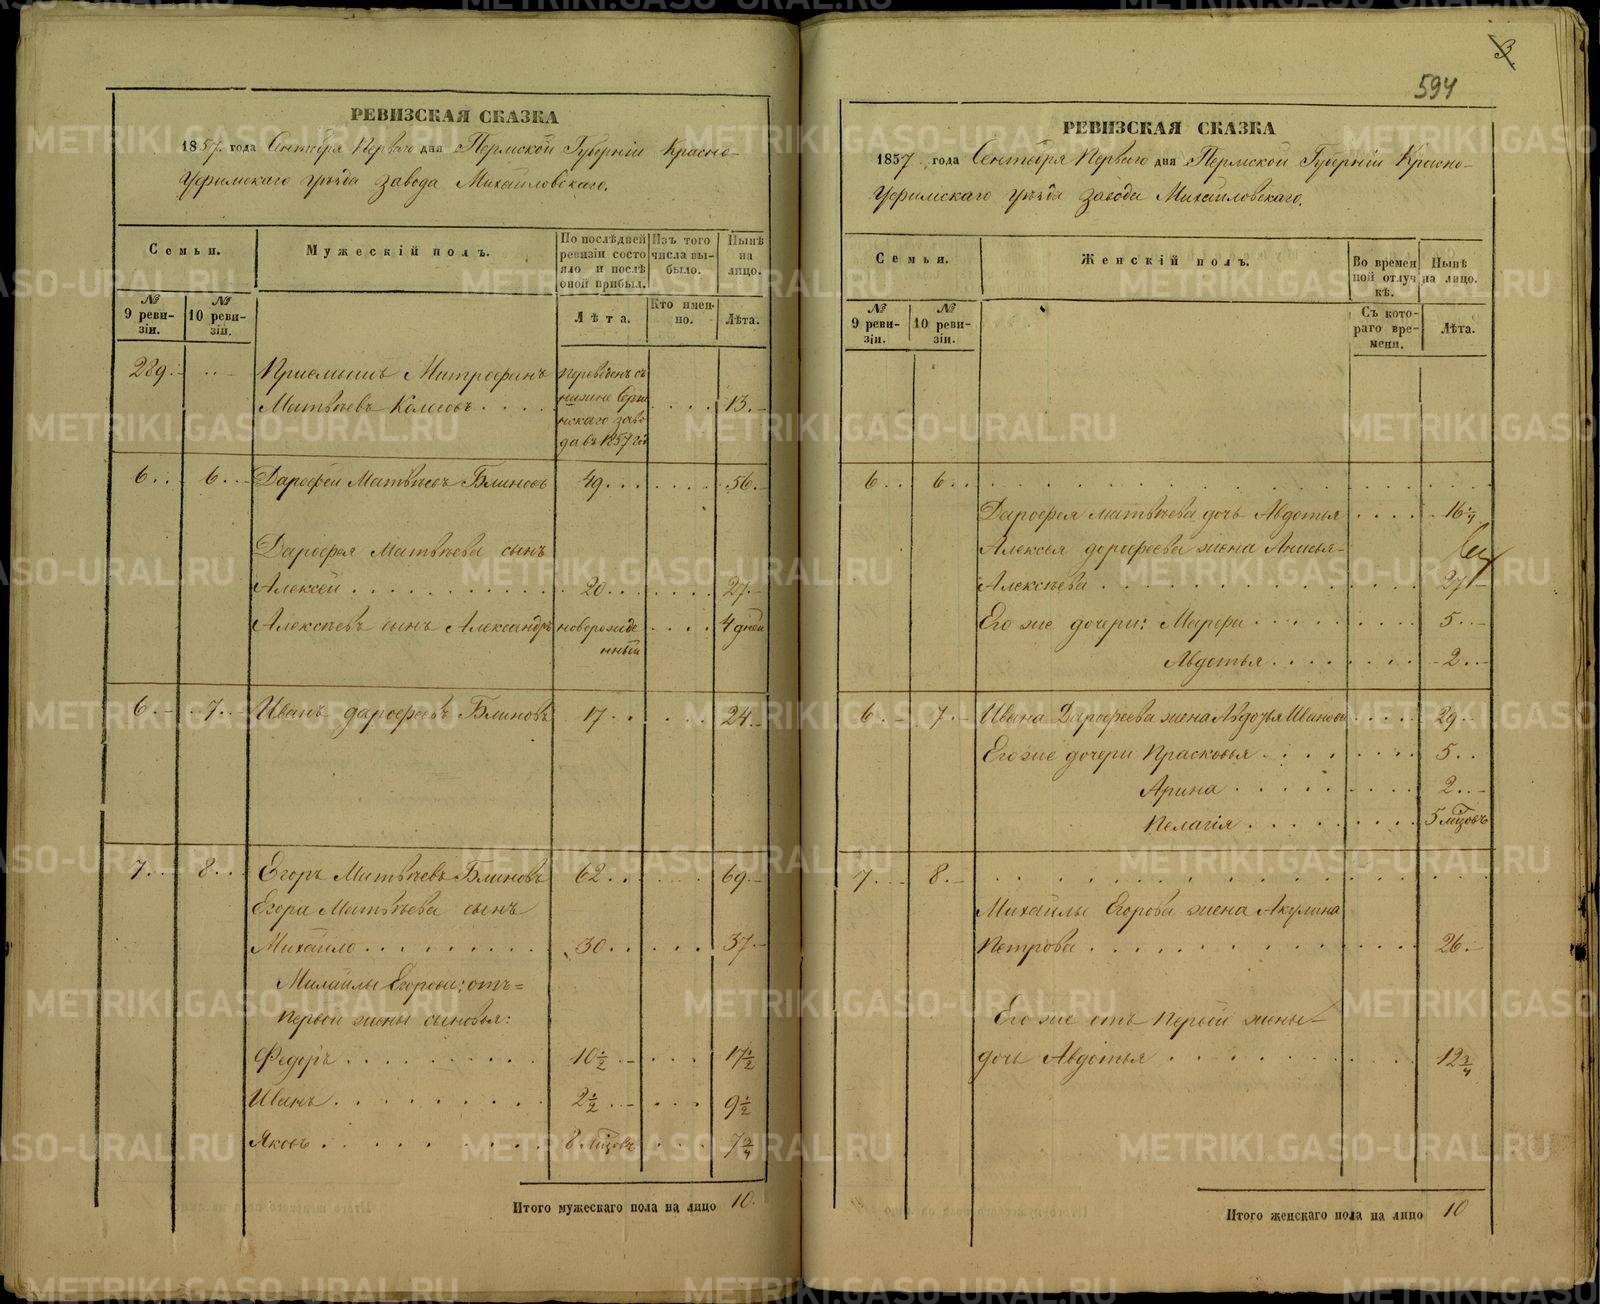 3.
594
РЕВИЗСКАЯ СКАЗКА
1857. года Сентября Перваго дня Пермской Губерніи Красно-
Уфимскаго уѣзда завода Михайловскаго.
Семьи.
Мужескій полъ.
По послѣдней ревизіи состояло и послѣ оной прибыл.
Изъ того числа выбыло.
Нынѣ на лицо.
№ 9 ревизіи.
№ 10 ревизіи.
Лѣта.
Кто именно.
Лѣта.
289.
Приемышъ Митрофанъ
Матвѣевъ Колосовъ . . . . 13.
переведенъ съ
нижне Серги
нскаго заво
да въ 1857 го
6. . 6. . Дарофей Матвѣевъ Блиновъ 49 . . . 56.
Дарофея Матвѣева сынъ
Алексей . . . 20 . . . 27.
Алексѣевъ сынъ Александръ новорожде . . . . 4 дней
нный
6. 7. Иванъ дарофѣевъ Блиновъ 17 . . 24.
7. . 8. . . Егоръ Матвѣевъ Блиновъ 62 . . . 69.
Егора Матвѣева сынъ
Михайло . . . 30 . . 37.
Михайлы Егорова: отъ=
первой жены сыновья:
Федоръ . . . 10½ . . . 17½
Иванъ . . . 2½ . . . 9½
Яковъ . . . 8 мѣсовъ . . . 7¾
Итого мужескаго пола на лицо 10.
РЕВИЗСКАЯ СКАЗКА
1857 года Сентября Перваго дня Пермской Губерніи Красно-
Уфимскаго уѣзда завода Михайловскаго.
Семьи.
Женскій полъ.
Во временной отлучкѣ.
Нынѣ на лицо.
№ 9 ревизіи.
№ 10 ревизіи.
Съ котораго времени.
Лѣта.
6. . 6. .
Дарофея матвѣева дочь Авдотья . . . . 16¼
Алексѣя дорофеева жена Анисья
Алексѣева . . . 27
Его же дочери: Марфа . . . 5. .
Авдотья . . . 2. .
6. 7. Ивана Дарофеева жена Авдотья Иванова . . . . 29
Его же дочери Прасковья . . . 5. .
Арина . . . 2. .
Пелагія . . . 5 мѣсовъ
7. . . 8.
Михайлы Егорова жена Акулина
Петрова . . . 26.
Его же отъ Первой жены
дочь Авдотья . . . 12¾
Итого женскаго пола на лицо 10
METRIKI.GASO-URAL.RU